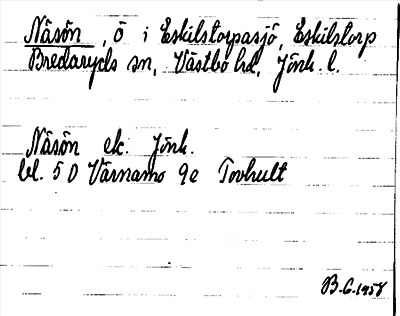 Näsön, ö i Eskilstorpasjö, Eskilstorp
Bredaryds sn, Västbo hd, Jönk. l.
Näsön ek. Jönk.
bl. 5 D Värnamo 9e Tovhult
B.G. 1958